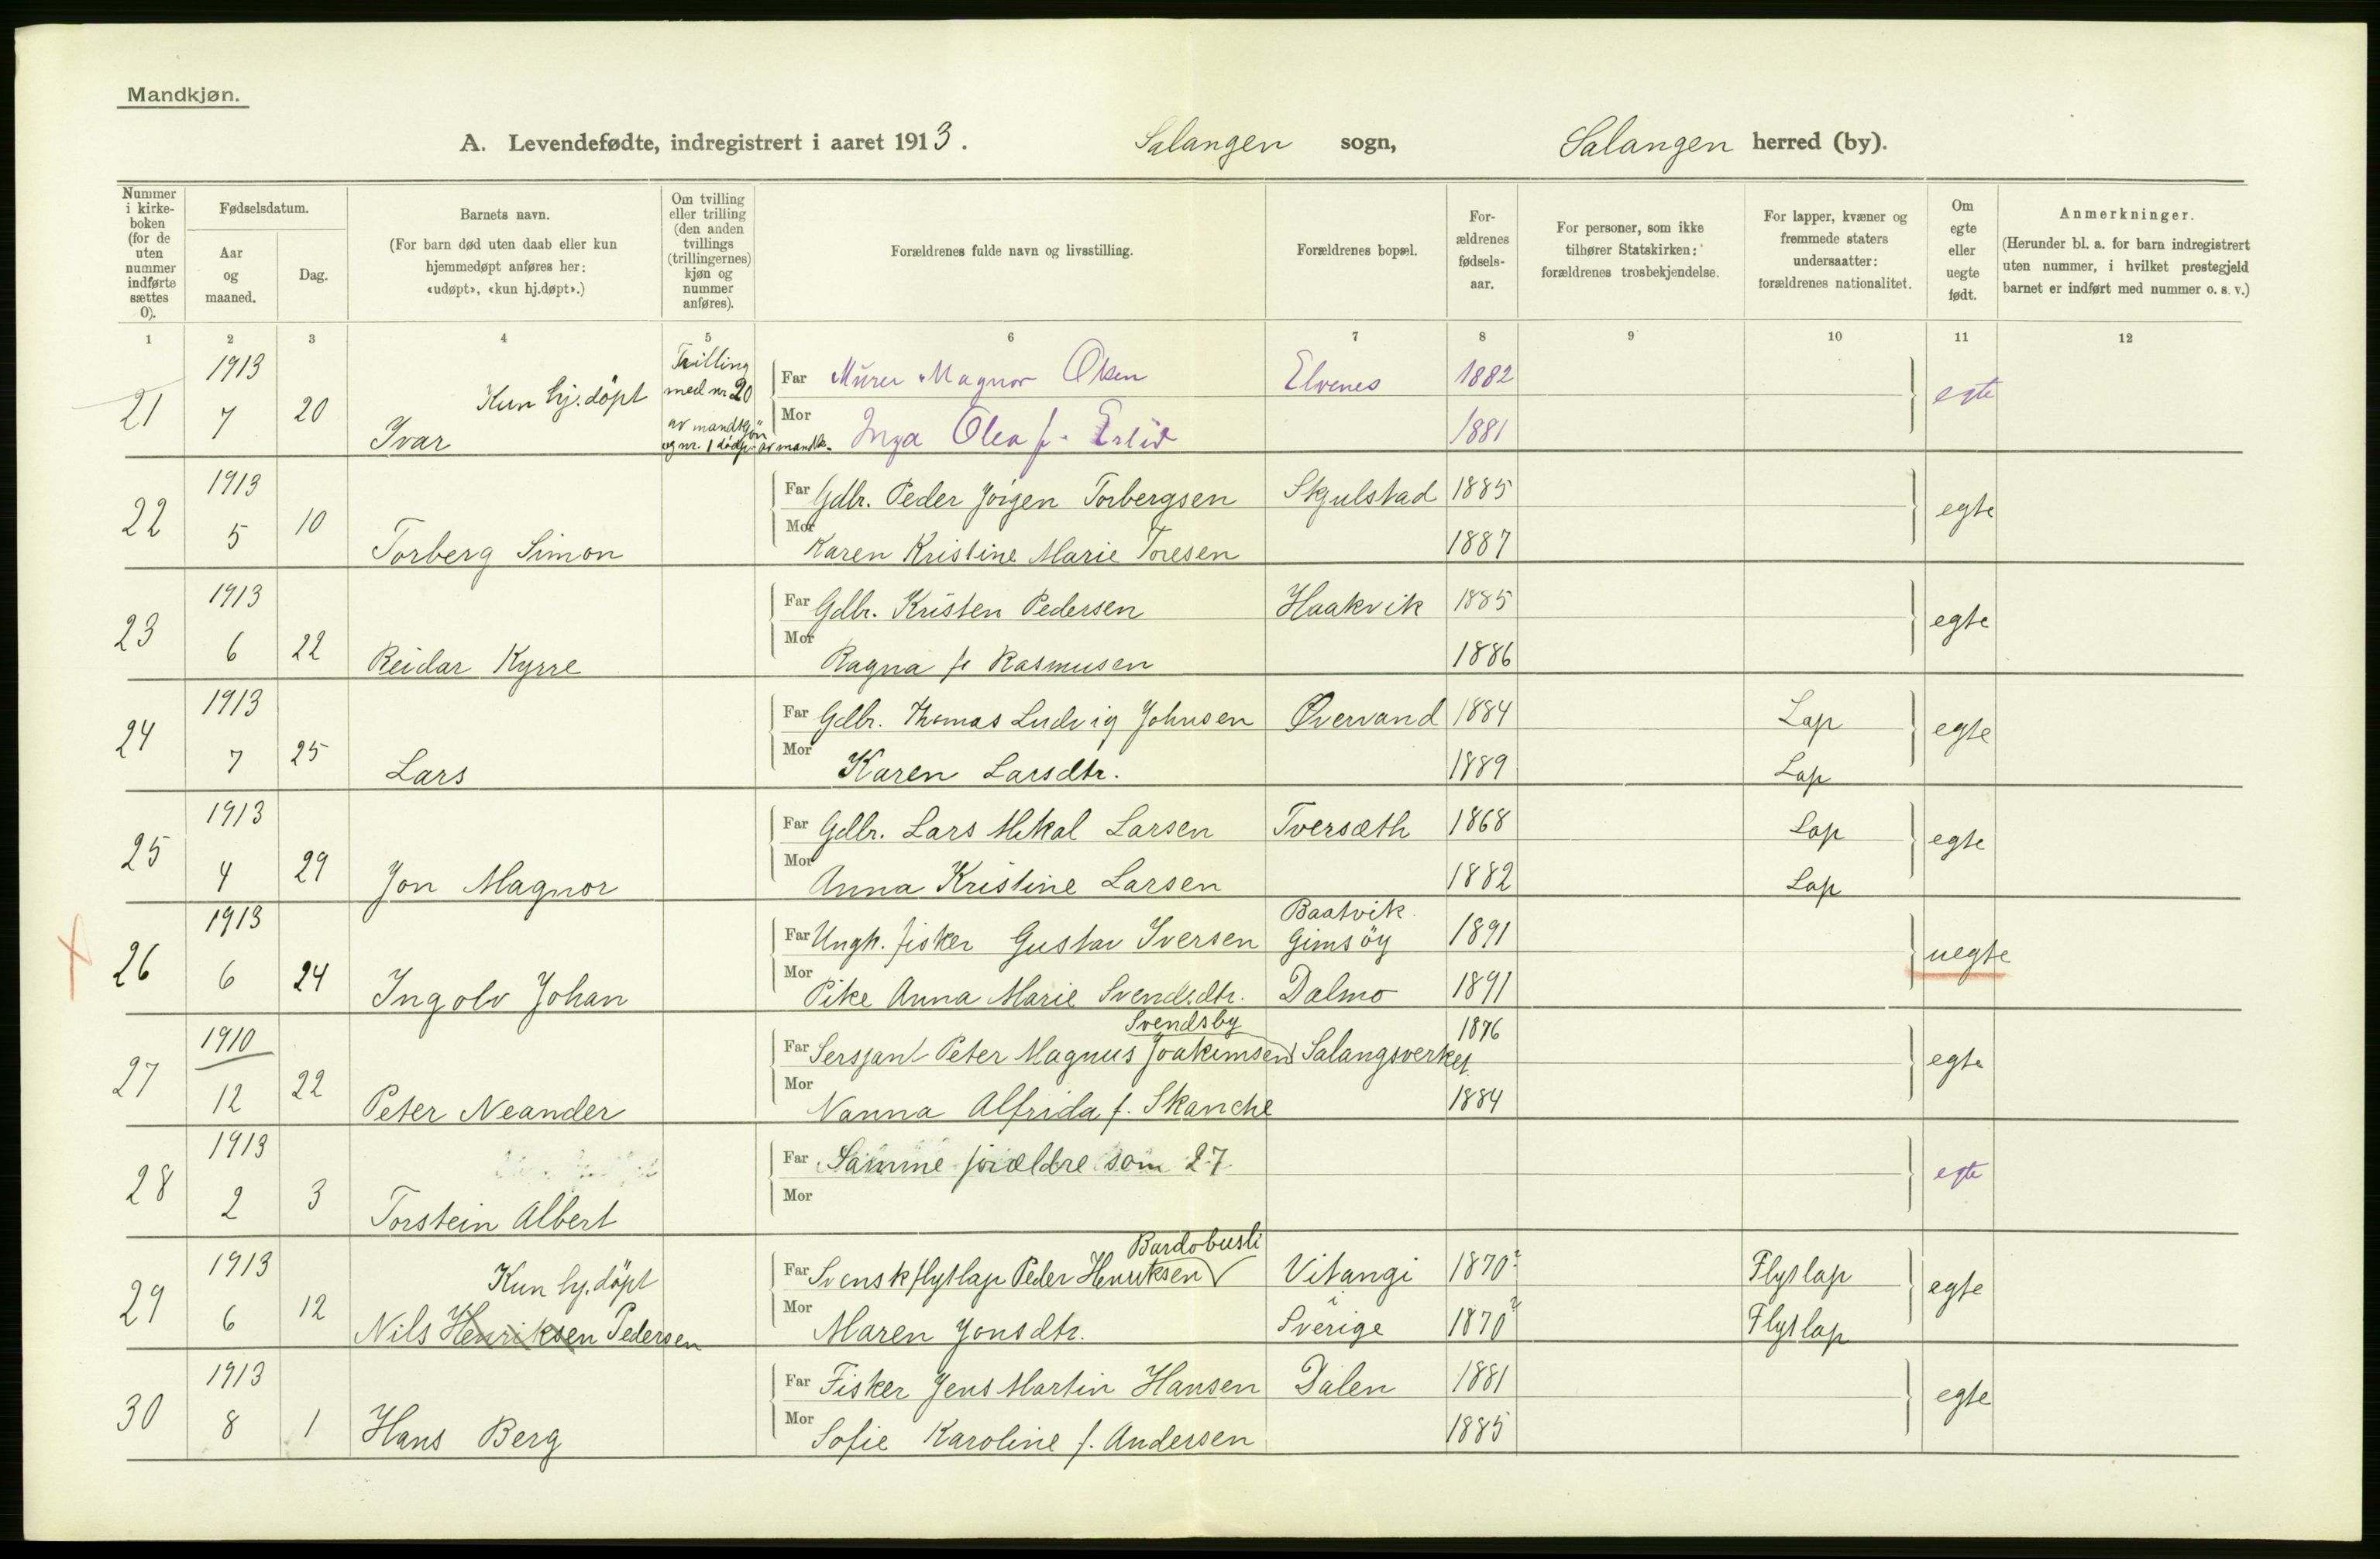 Mandkjøn.
A. Levendefødte, indregistrert i aaret 1913. Salangen sogn, Salangen herred (by).
Nummer i kirke-boken (for de uten nummer indførte sættes 0).
Fødselsdatum.
Aar og maaned.
Dag.
Barnets navn.
(For barn død uten daab eller kun hjemmedøpt anføres her: «udøpt», «kun hj.døpt».)
Om tvilling eller trilling (den anden tvillings (trillingernes) kjøn og nummer anføres).
Forældrenes fulde navn og livsstilling.
Forældrenes bopæl.
For-ældrenes fødsels-aar.
For personer, som ikke tilhører Statskirken: forældrenes trosbekjendelse.
For lapper, kvæner og fremmede staters undersaatter: forældrenes nationalitet.
Om egte eller uegte født.
Anmerkninger.
(Herunder bl. a. for barn indregistrert uten nummer, i hvilket prestegjeld barnet er indført med nummer o. s. v.)
1 2 3 4 5 6 7 8 9 10 11 12
21 1913 7 20 Kun hj.döpt Ivar
Trilling med nr 20 av mandkjön og nr. 1 dödf. av mandk.
Far Murer Magnor Olsen Elvenes 1882 egte
Mor Inga Olea f. 1881
22 1913 5 10 Torberg Simon
Far Gdbr. Peder Jörgen Torbergsen Skjulstad 1885 egte
Mor Karen Kristine Marie Toresen 1887
23 1913 6 22 Reidar Kyrre
Far Gdbr. Kristen Pedersen Haakvik 1885 egte
Mor Ragna f. Rasmusen 1886
24 1913 7 25 Lars
Far Gdbr. Thomas Ludvig Johnsen Øvervand 1884 Lap egte
Mor Karen Larsdtr. 1889 Lap
25 1913 4 29 Jon Magnor
Far Gdbr. Lars Mikal Larsen Tversæth 1868 Lap egte
Mor Anna Kristine Larsen 1882 Lap
26 1913 6 24 Ingolv Johan
Far Ungk. fisker Gustav Iversen Baatvik Gimsöy 1891 uegte
Mor Pike Anna Marie Svendsdtr. Dalmo 1891
27 1910 12 22 Peter Neander
Far Sersjant Peter Magnus Joakimsen Svendsby Salangsverket 1876 egte
Mor Nanna Alfrida f. Skanche 1884
28 1913 2 3 Torstein Albert
Far Samme forældre som 27. egte
Mor
29 1913 6 12 Kun hj.döpt Nils Henriksen Pedersen
Far Svensk flytlap Peder Henriksen Bardobusli Vitangi 1870? Flytlap egte
Mor Maren Jonsdtr. i Sverige 1870? Flytlap
30 1913 8 1 Hans Berg
Far Fisker Jens Martin Hansen Dalen 1881 egte
Mor Sofie Karoline f. Andersen 1885